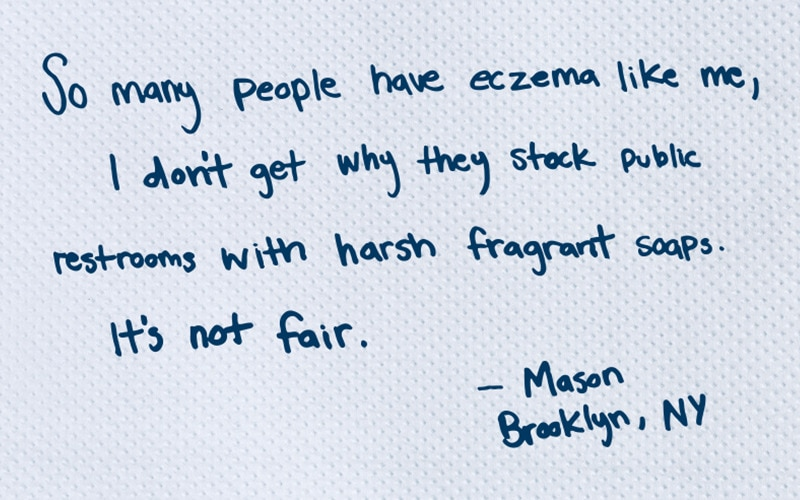 So many people have eczema like me,
I don't get why they stock public
restrooms with harsh fragrant soaps.
It's not fair.
— Mason
Brooklyn, NY